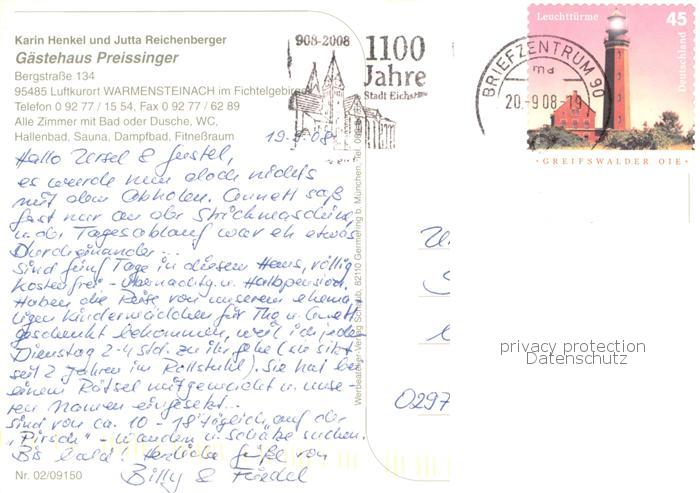 Karin Henkel und Jutta Reichenberger
Gästehaus Preissinger
Bergstraße 134
95485 Luftkurort WARMENSTEINACH im Fichtelgebirge
Telefon 0 92 77 / 15 54, Fax 0 92 77 / 62 89
Alle Zimmer mit Bad oder Dusche, WC,
Hallenbad, Sauna, Dampfbad, Fitneßraum
908-2008
1100
Jahre
Stadt Eichstätt
BRIEFZENTRUM 90
md
20.-9.08-19
Leuchttürme
45
Deutschland
· GREIFSWALDER OIE ·
19.9.08
Hallo Ursel & Gustel,
es wurde nun doch nichts
mit dem Abholen. Annett saß
fast nur an der Strickmaschine
u. der Tagesablauf war eh etwas
Durcheinander...
Sind fünf Tage in diesem Haus, völlig
kostenfrei - Übernachtg. u. Halbpension.
Haben die Reise von unserem ehema-
ligen Kindermädchen für Thg u. Annett
geschenkt bekommen, weil ich jeden
Dienstag 2-4 Std. zu ihr gehe (sie sitzt
seit 2 Jahren im Rollstuhl). Sie hat bei
einem Rätsel mitgemacht u. unse-
ren Namen eingesetzt...
Sind von ca. 10 - 18 täglich "auf der
Pirsch" - wandern u. Schätze suchen.
Bis bald! Herzliche Grüße von
Billy & Friedel
Werbeatelier-Verlag Schwab, 82110 Germering b. München, Tel. 089
0297
privacy protection
Datenschutz
Nr. 02/09150